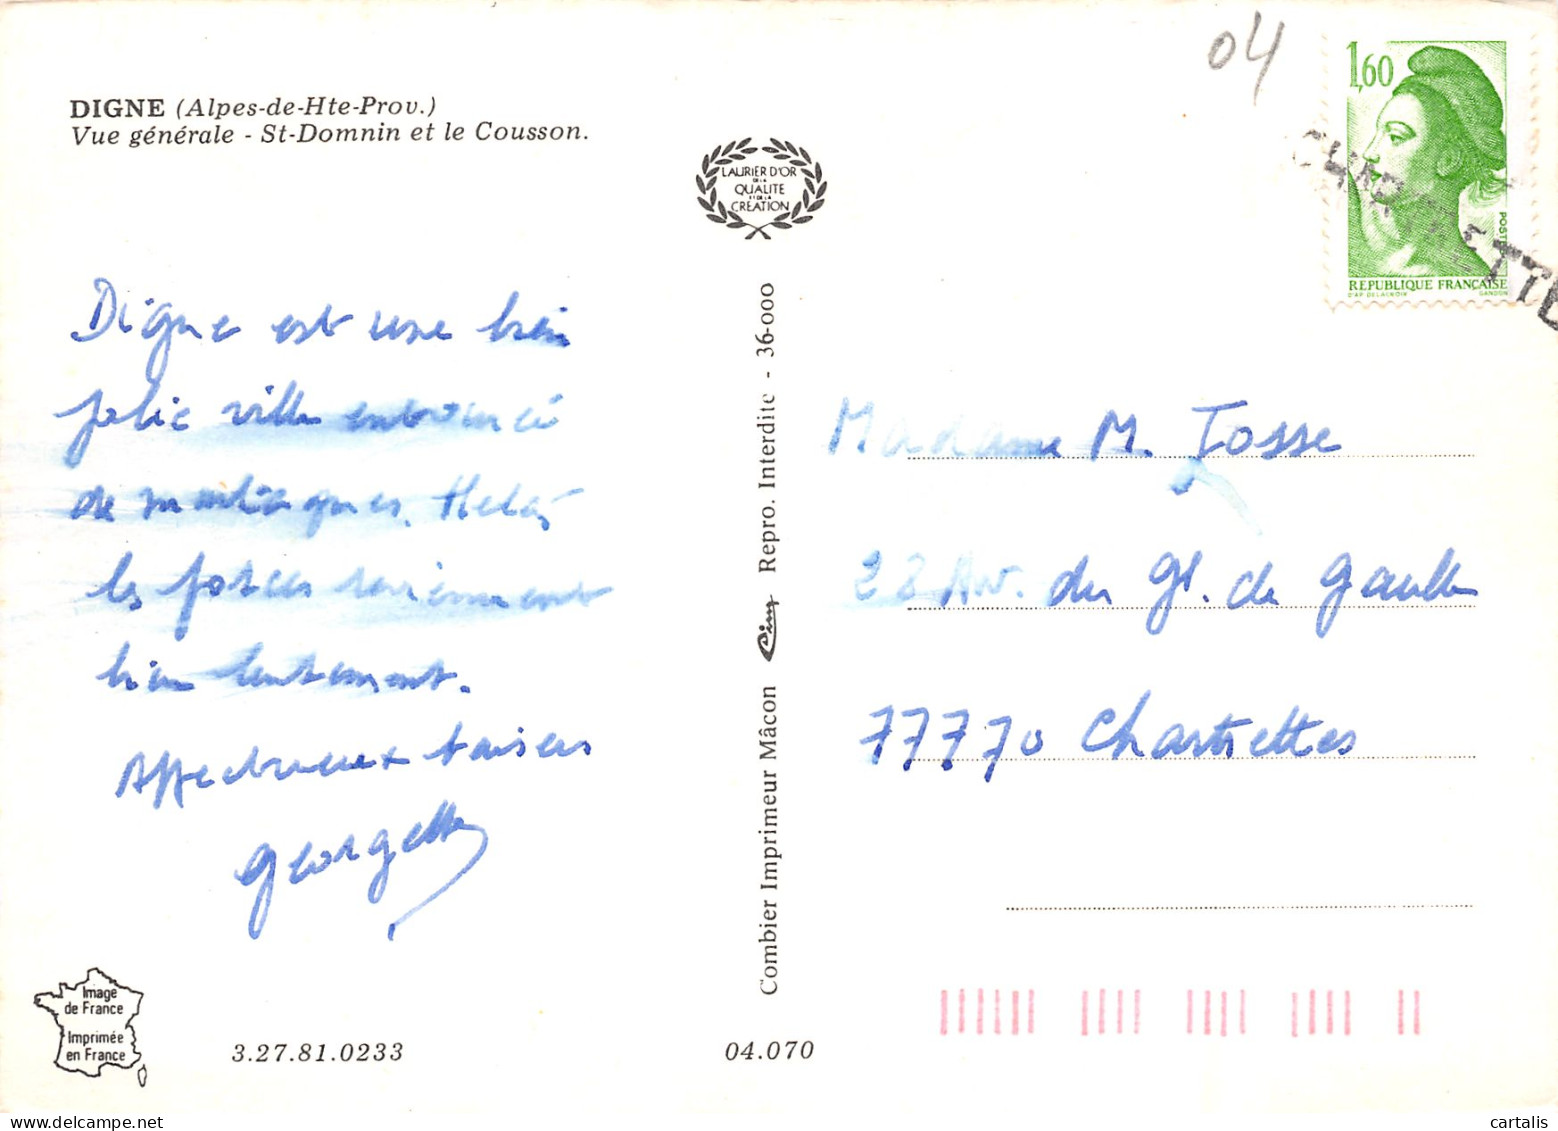 04
1,60
POSTES
REPUBLIQUE FRANÇAISE
D'AP. DELACROIX GANDON
CHARTRETTE
DIGNE (Alpes-de-Hte-Prov.)
Vue générale - St-Domnin et le Cousson.
LAURIER D'OR
DE LA
QUALITE
ET DE LA
CREATION
Digne est une bien
jolie ville entourée
de montagnes. Helas
les forces reviennent
bien lentement.
Affectueux baisers
Georgette
Combier Imprimeur Mâcon Cim Repro. Interdite - 36-000
Madame M. Josse
28 Av. du Gl. de Gaulle
77770 Chartrettes
Image
de France
Imprimée
en France
3.27.81.0233
04.070
cartalis